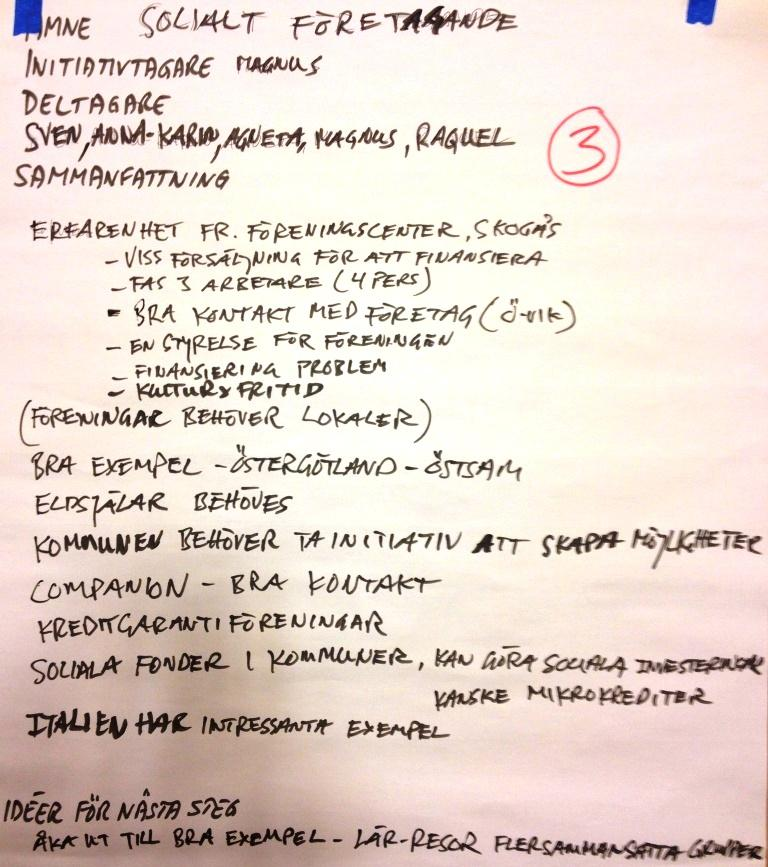 ÄMNE SOCIALT FÖRETAGANDE
INITIATIVTAGARE MAGNUS
DELTAGARE
SVEN, ANNA-KARIN, AGNETA, MAGNUS, RAQUEL
3
SAMMANFATTNING
ERFARENHET FR. FÖRENINGSCENTER, SKOGÅS
- VISS FÖRSÄLJNING FÖR ATT FINANSIERA
- FAS 3 ARBETARE (4 PERS)
- BRA KONTAKT MED FÖRETAG (Ö-VIK)
- EN STYRELSE FÖR FÖRENINGEN
- FINANSIERING PROBLEM
- KULTUR & FRITID
(FÖRENINGAR BEHÖVER LOKALER)
BRA EXEMPEL - ÖSTERGÖTLAND - ÖSTSAM
ELDSJÄLAR BEHÖVES
KOMMUNEN BEHÖVER TA INITIATIV ATT SKAPA MÖJLIGHETER
COMPANION - BRA KONTAKT
KREDITGARANTIFÖRENINGAR
SOCIALA FONDER I KOMMUNER, KAN GÖRA SOCIALA INVESTERINGAR
KANSKE MIKROKREDITER
ITALIEN HAR INTRESSANTA EXEMPEL
IDÉER FÖR NÄSTA STEG
ÅKA UT TILL BRA EXEMPEL - LÄR-RESOR FLERSAMMANSATTA GRUPPER